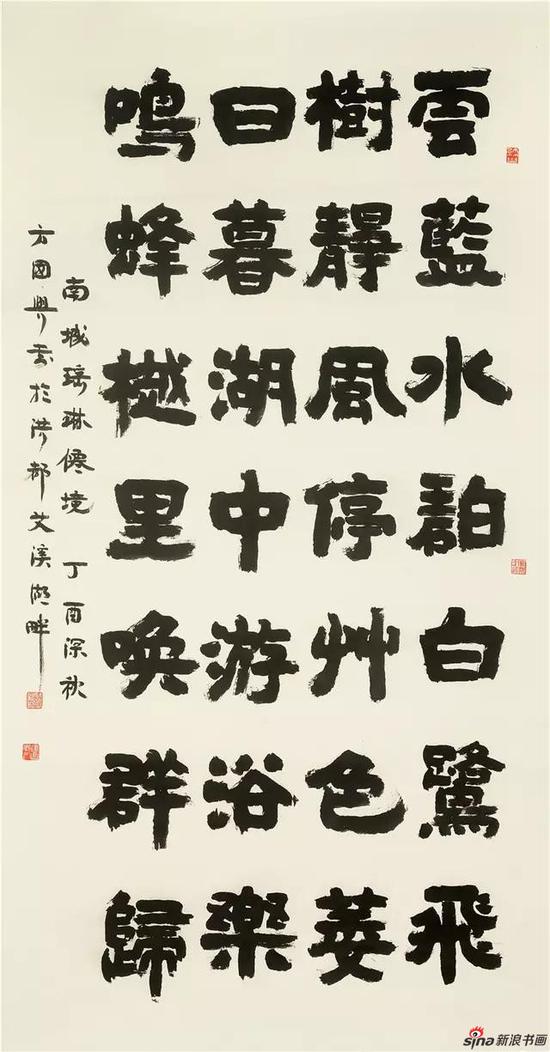 雲藍水碧白鷺飛
樹靜風停艸色萋
日暮湖中游浴樂
鳴蜂樾里喚群歸
南城瑤琳僊境 丁酉深秋
方國興書於洪都艾溪湖畔
sina新浪书画